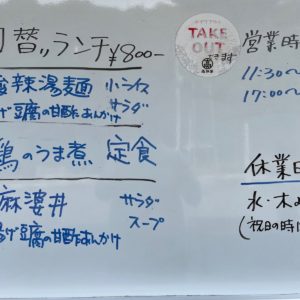 替ランチ ¥800-
辣湯麺 小ライス
げ豆腐の甘酢あんかけ サラダ
鶏のうま煮 定食
麻婆丼 サラダ
スープ
げ豆腐の甘酢あんかけ
TAKE OUT
できます
営業時
11:30~
17:00~
休業日
水・木
(祝日の時は